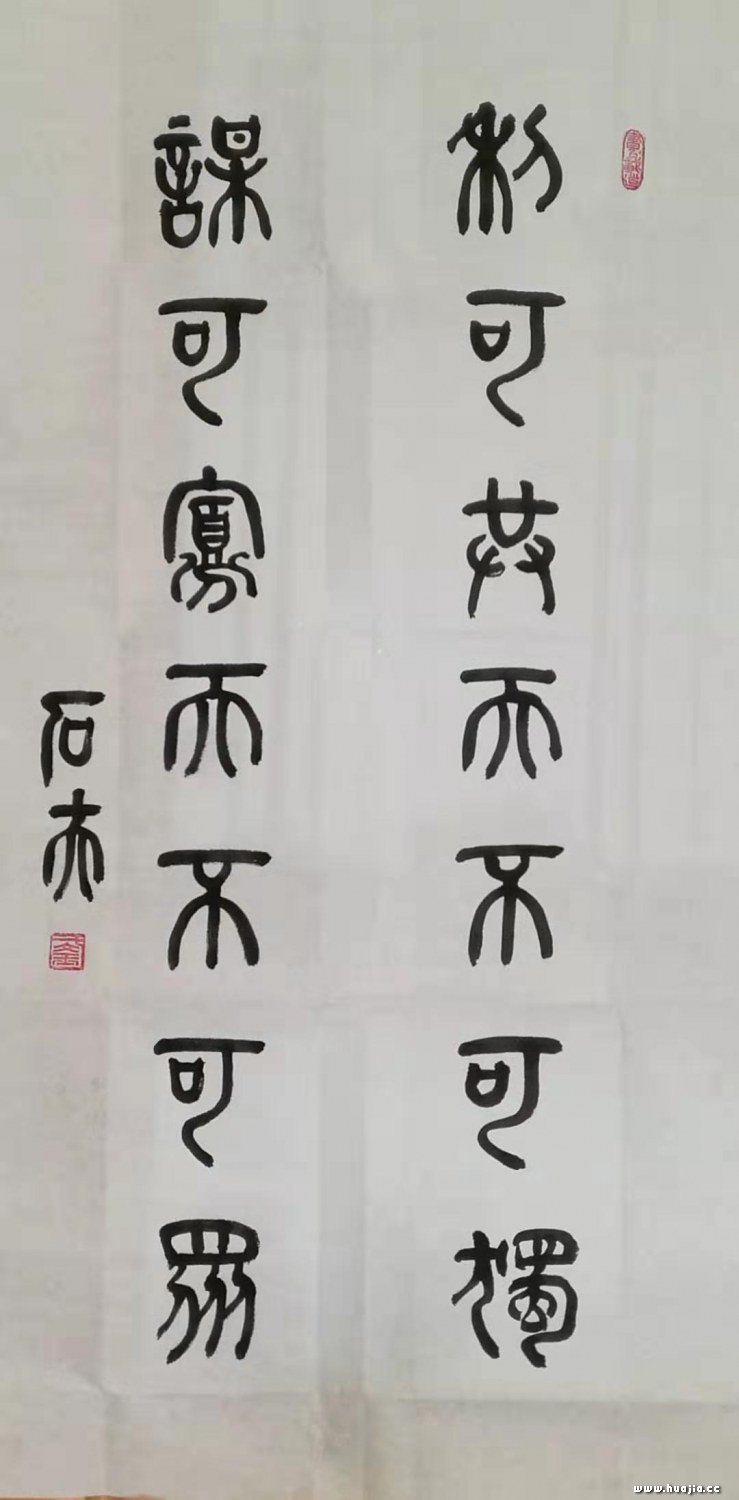 利可共而不可獨
謀可寡而不可眾
石夫
www.huajia.cc